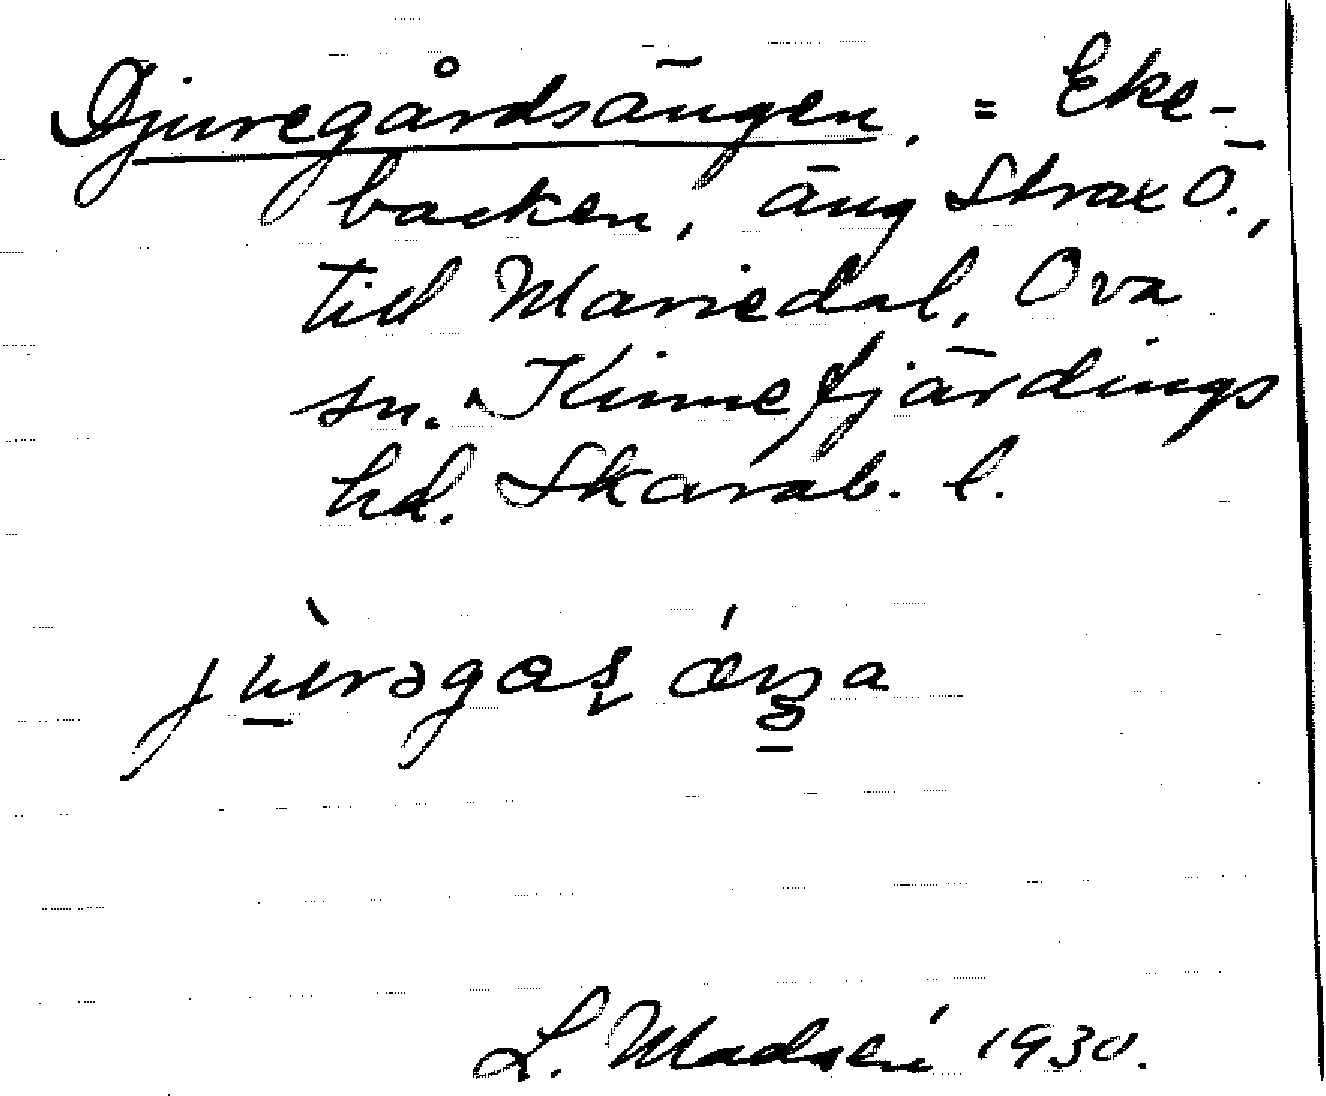 Djuregårdsängen, = Eke-
backen, äng strax Ö.,
till Mariedal, Ova
sn. Kinnefjärdings
hd. Skarab. l.
L. Madsén 1930.